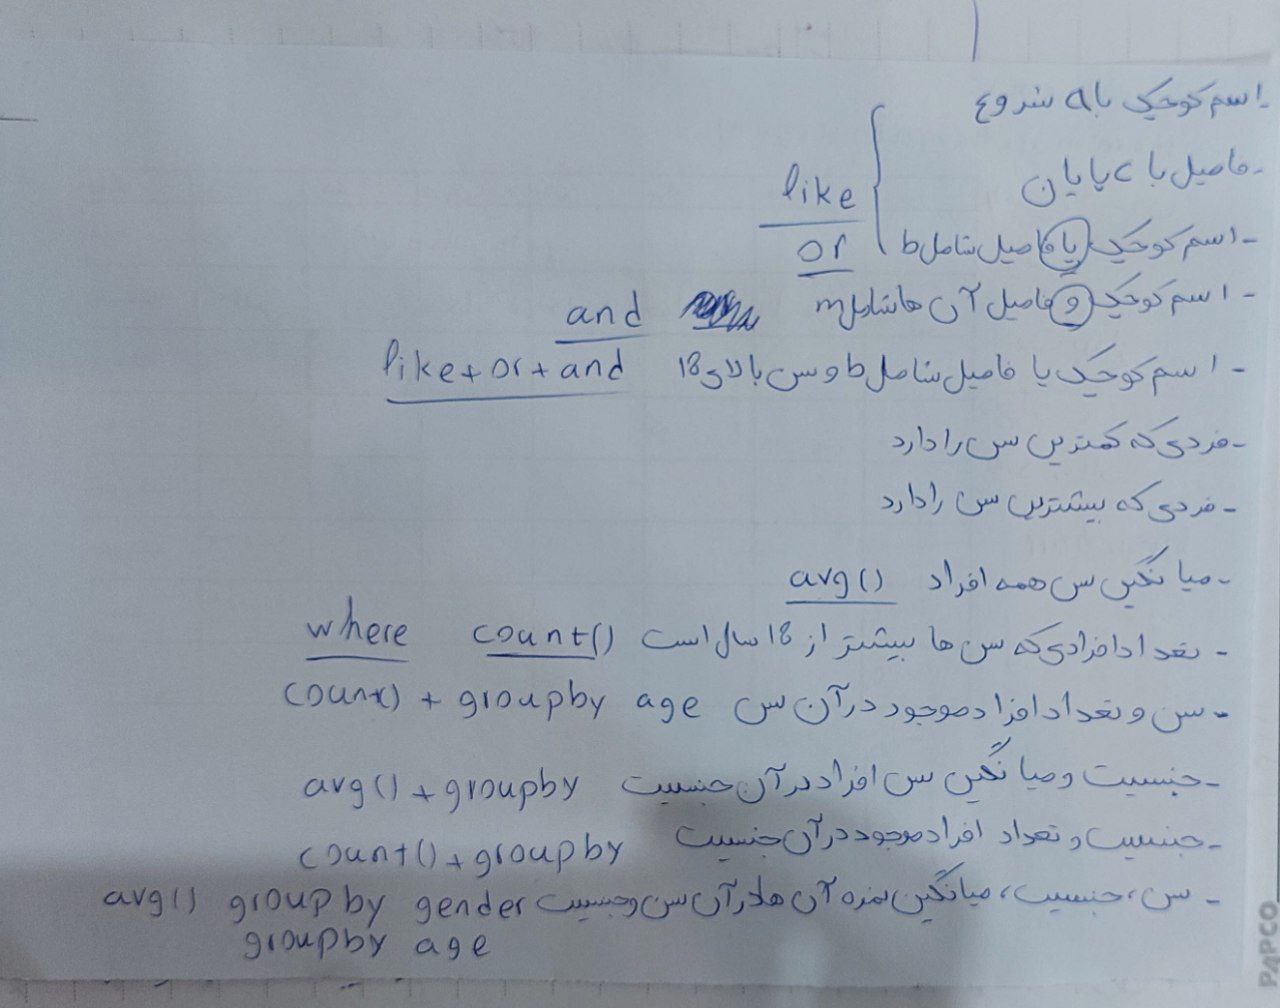 - اسم کوچیک با a شروع
- فامیل با c پایان
like
- اسم کوچیک یا فامیل شامل b
or
- اسم کوچیک و فامیل آن ها شامل m and
- اسم کوچیک یا فامیل شامل b و سن بالای 18 like + or + and
- فردی که کمترین سن را دارد
- فردی که بیشترین سن را دارد
- میانگین سن همه افراد avg()
- تعداد افرادی که سن ها بیشتر از 18 سال است count() where
- سن و تعداد افراد موجود در آن سن count() + group by age
- جنسیت و میانگین سن افراد در آن جنسیت avg() + group by
- جنسیت و تعداد افراد موجود در آن جنسیت count() + group by
- سن، جنسیت، میانگین نمره آن ها در آن سن و جنسیت avg() group by gender
group by age
PAPCO